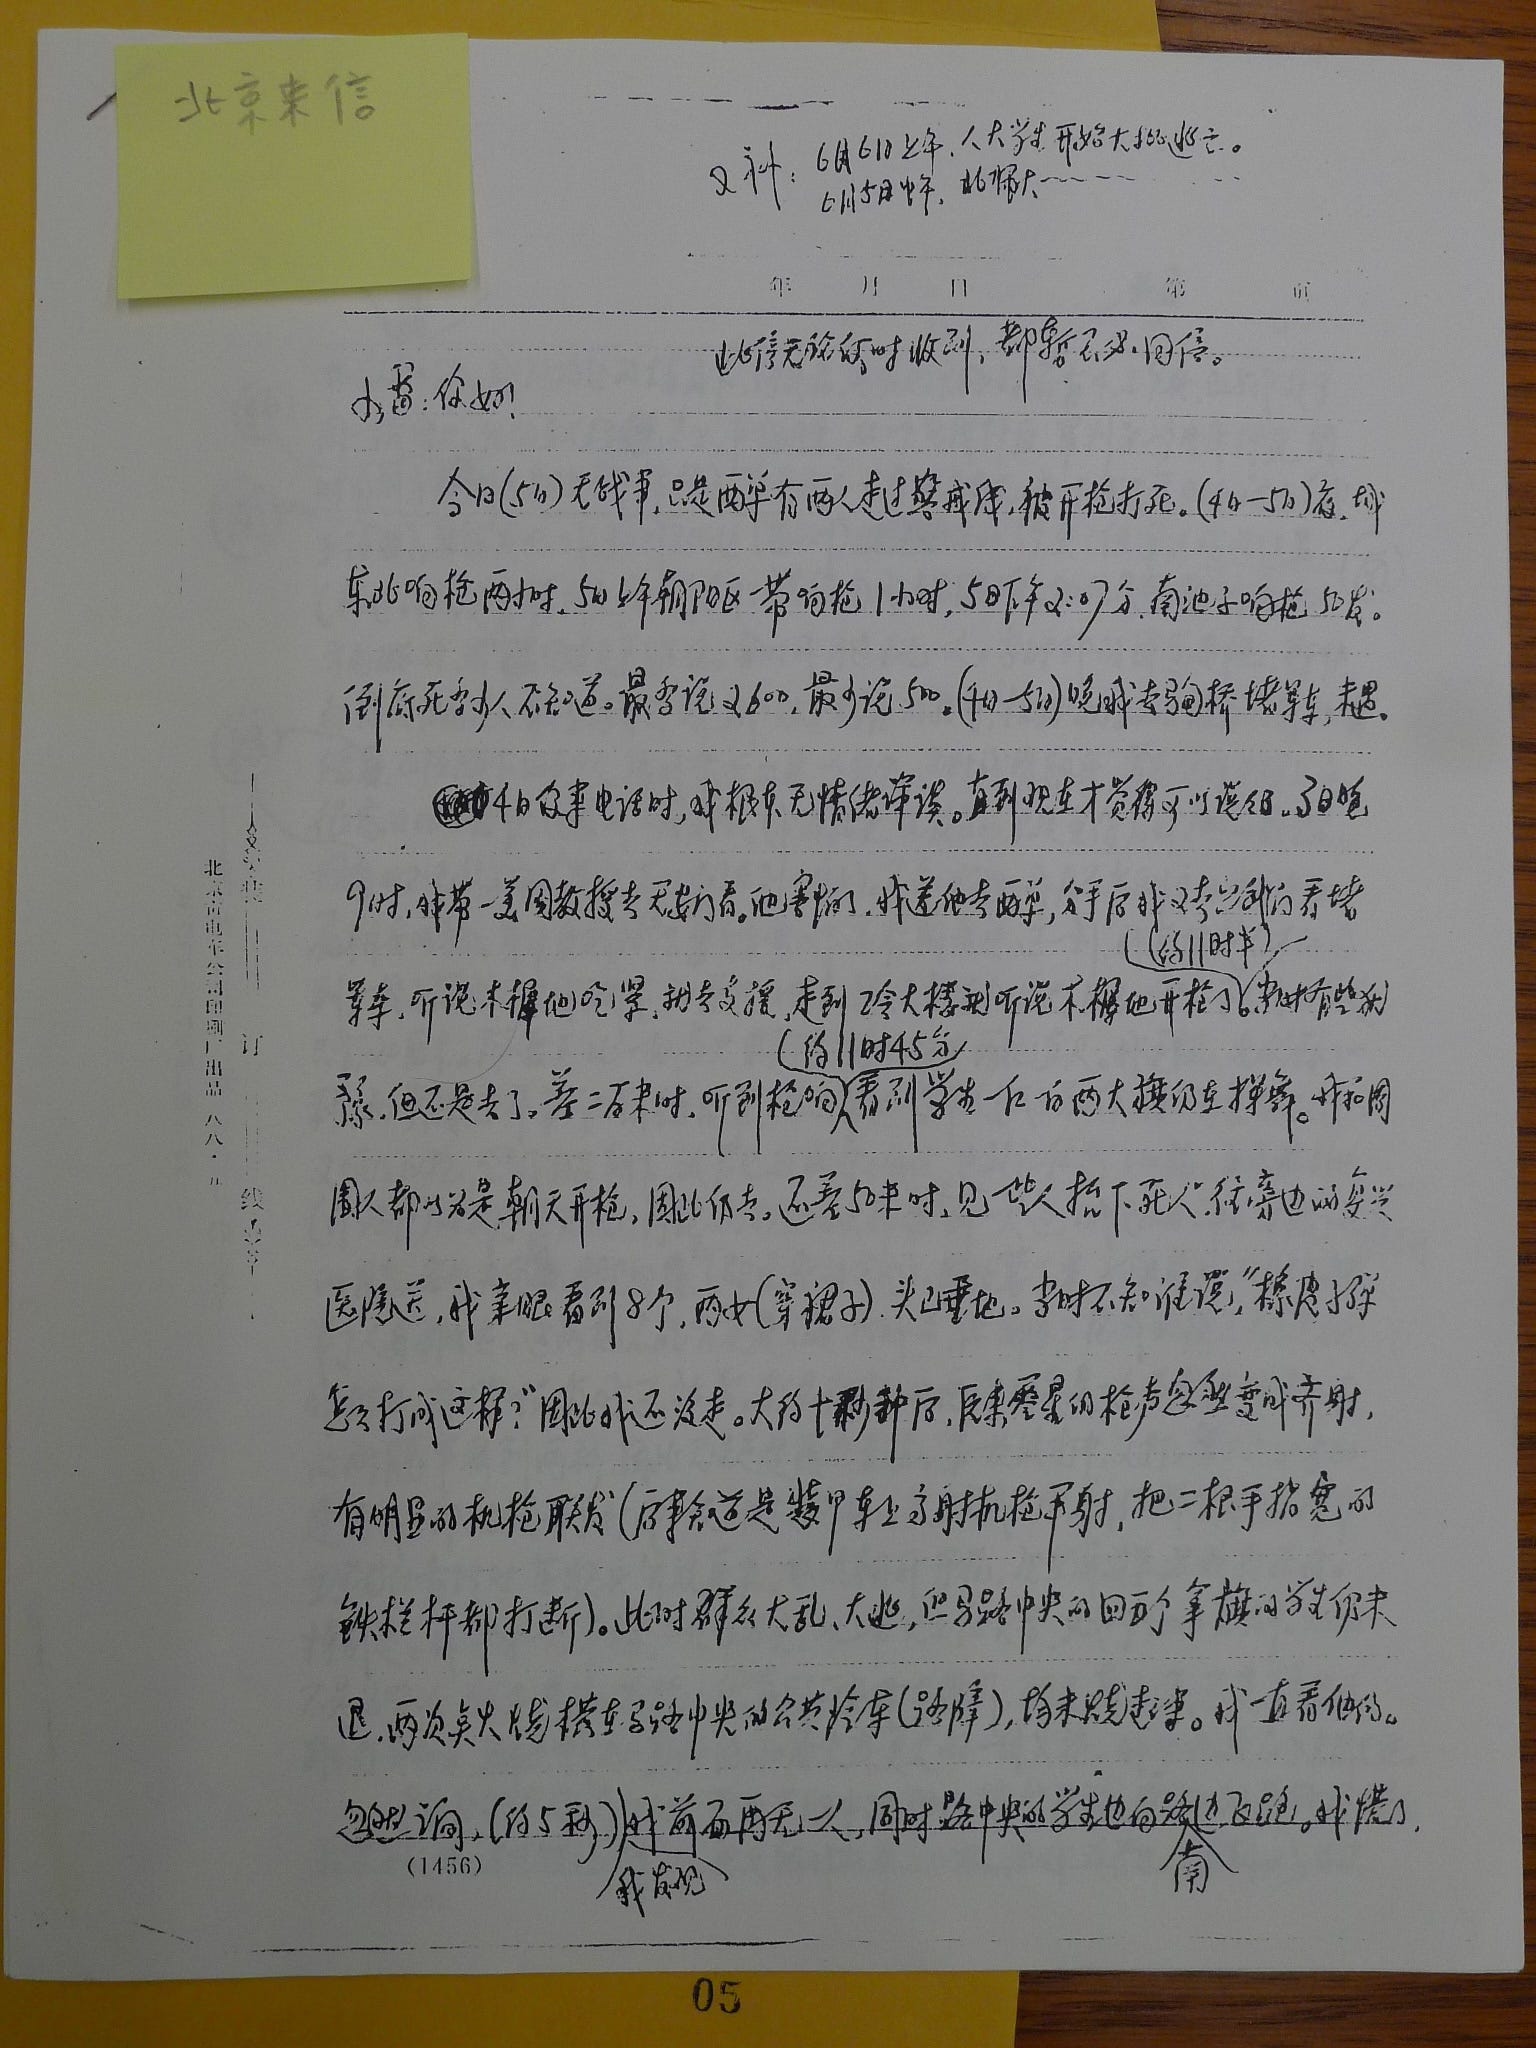 北京来信
又补：6月6日上午，人大学生开始大批逃亡。
6月5日中午，北师大
年 月 日 第 页
此信无论何时收到，都暂不必回信。
小雷：你好！
今日(5日)无战事，只是西单有两人走过警戒线，被开枪打死。(4日—5日)夜，城
东北响枪两小时，5日上午朝阳区一带响枪1小时，5日下午2:07分，南池子响枪50发。
到底死多少人不知道。最多说2600，最少说500。(4日—5日)晚我去骑桥堵军车，未遇。
4日你来电话时，我根本无情绪详谈。直到现在才觉得可以谈谈。3日晚
9时，我带一美国教授去天安门看。他害怕了，我送他去西单，分手后我又去看堵
(约11时半)
军车，听说木樨地吃紧，就去支援，走到工会大楼就听说木樨地开枪了。当时有些犹
(约11时45分)
豫，但还是去了。差二百米时，听到枪响，看到学生一红一白两大旗仍在挥舞。我和周
围人都以为是朝天开枪，因此仍去。还差50米时，见一些人抬下死人往旁边的复兴
医院送，我亲眼看到8个，两女(穿裙子)，头已垂地。当时不知谁说，“橡皮子弹
怎么打成这样？”因此我还没走。大约十秒钟后，原来零星的枪声忽然变成齐射，
有明显的机枪联发(后来知道是装甲车上高射机枪平射，把二根手指宽的
铁栏杆都打断)。此时群众大乱、大逃，但马路中央的四五个拿旗的学生仍未
退，两次点火烧横在马路中央的公共汽车(路障)，均未烧起来。我一直看他们。
忽然间，(约5秒)我前面再无一人，同时路中央的学生也向路边飞跑。我慌了，
我发现
南
(1456)
装 订 线
北京市电车公司印刷厂出品 八八·
05